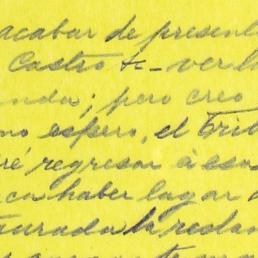 acabar de presente
Castro & - ver la
nda; pero creo
no espero, el Trib
ré regresar á esa
ca haber lugar
aurada la resta